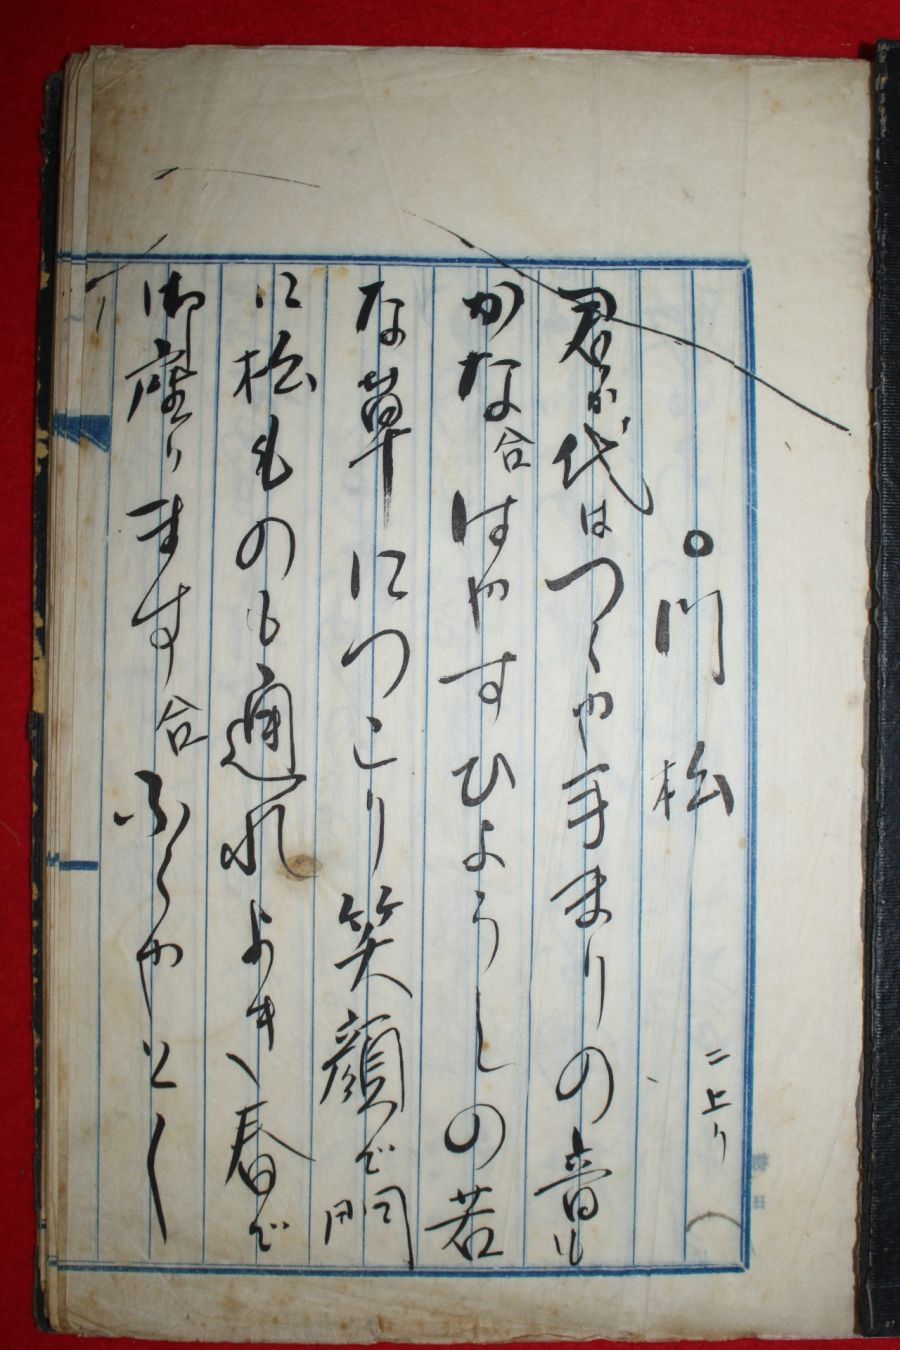 ○門松
二上り
君が代はつくや手まりの音も
かな合はやすひようしの若
な草につこり笑顔で門
に松ものも通れよき春で
御座ります合ふくやとし